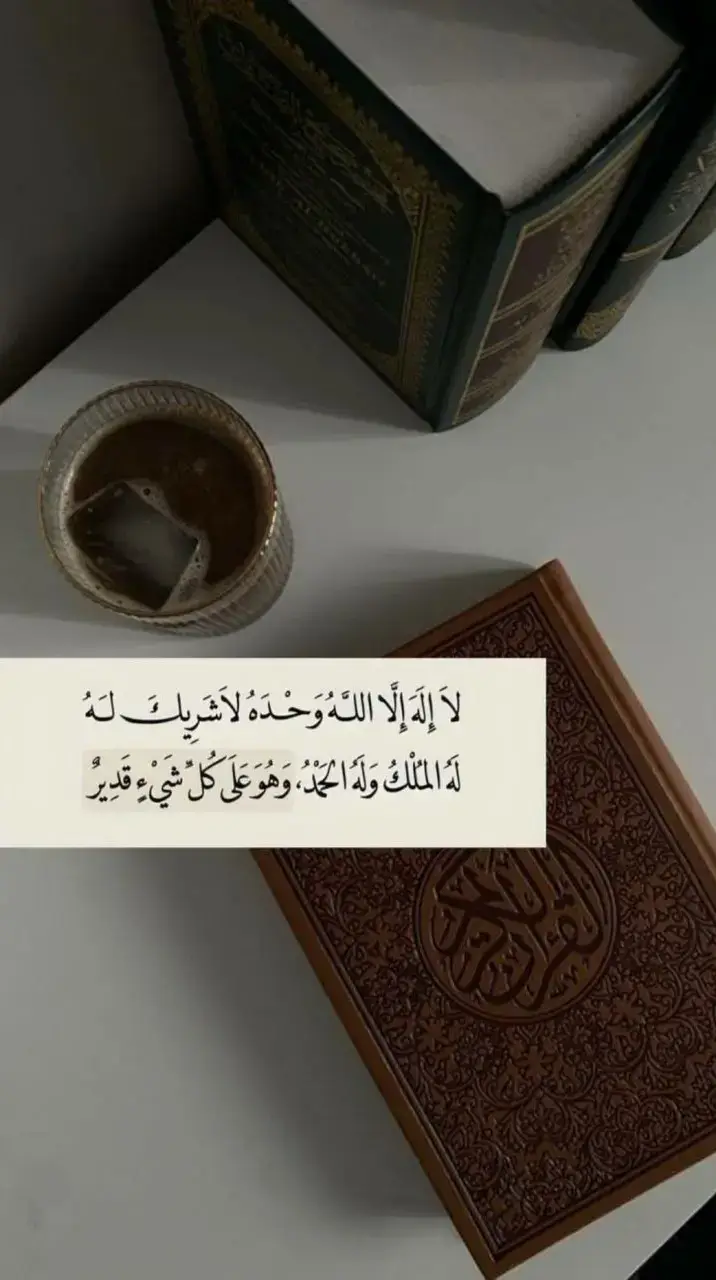 لاَ إِلَهَ إِلَّا اللَّهُ وَحْدَهُ لاَ شَرِيكَ لَهُ
لَهُ المُلْكُ وَلَهُ الحَمْدُ، وَهُوَ عَلَى كُلِّ شَيْءٍ قَدِيرٌ
القرآن الكريم